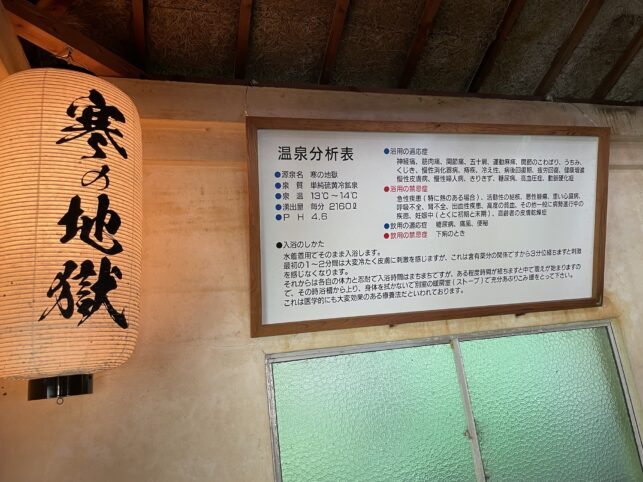 寒の地獄
温泉分析表
●源泉名 寒の地獄
●泉 質 単純硫黄冷鉱泉
●泉 温 13℃~14℃
●湧出量 毎分 2160ℓ
●P H 4.6
●浴用の適応症
神経痛、筋肉痛、関節痛、五十肩、運動麻痺、関節のこわばり、うちみ、
くじき、慢性消化器病、痔疾、冷え性、病後回復期、疲労回復、健康増進
慢性皮膚病、慢性婦人病、きりきず、糖尿病、高血圧症、動脈硬化症
●浴用の禁忌症
急性疾患(特に熱のある場合)、活動性の結核、悪性腫瘍、重い心臓病、
呼吸不全、腎不全、出血性疾患、高度の貧血、その他一般に病勢進行中の
疾患、妊娠中(とくに初期と末期)、高齢者の皮膚乾燥症
●飲用の適応症 糖尿病、痛風、便秘
●飲用の禁忌症 下痢のとき
●入浴のしかた
水着着用でそのまま入浴します。
最初の1~2分間は大変冷たく皮膚に刺激を感じますが、これは含有薬分の関係ですから3分位経ちますと刺激
を感じなくなります。
それからは各自の体力と忍耐で入浴時間はまちまちですが、ある程度時間が経ちますと中で震えが始まりますの
で、その時浴槽から上り、身体を拭かないで別室の暖房室(ストーブ)で充分あぶりこみ暖をとって下さい。
これは医学的にも大変効果のある療養法だといわれております。